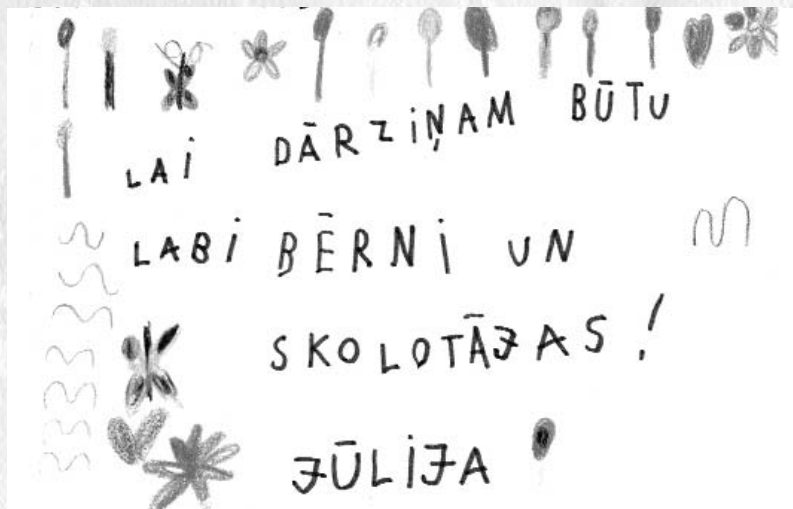 LAI DĀRZIŅAM BŪTU
LABI BĒRNI UN
SKOLOTĀJAS!
JŪLIJA